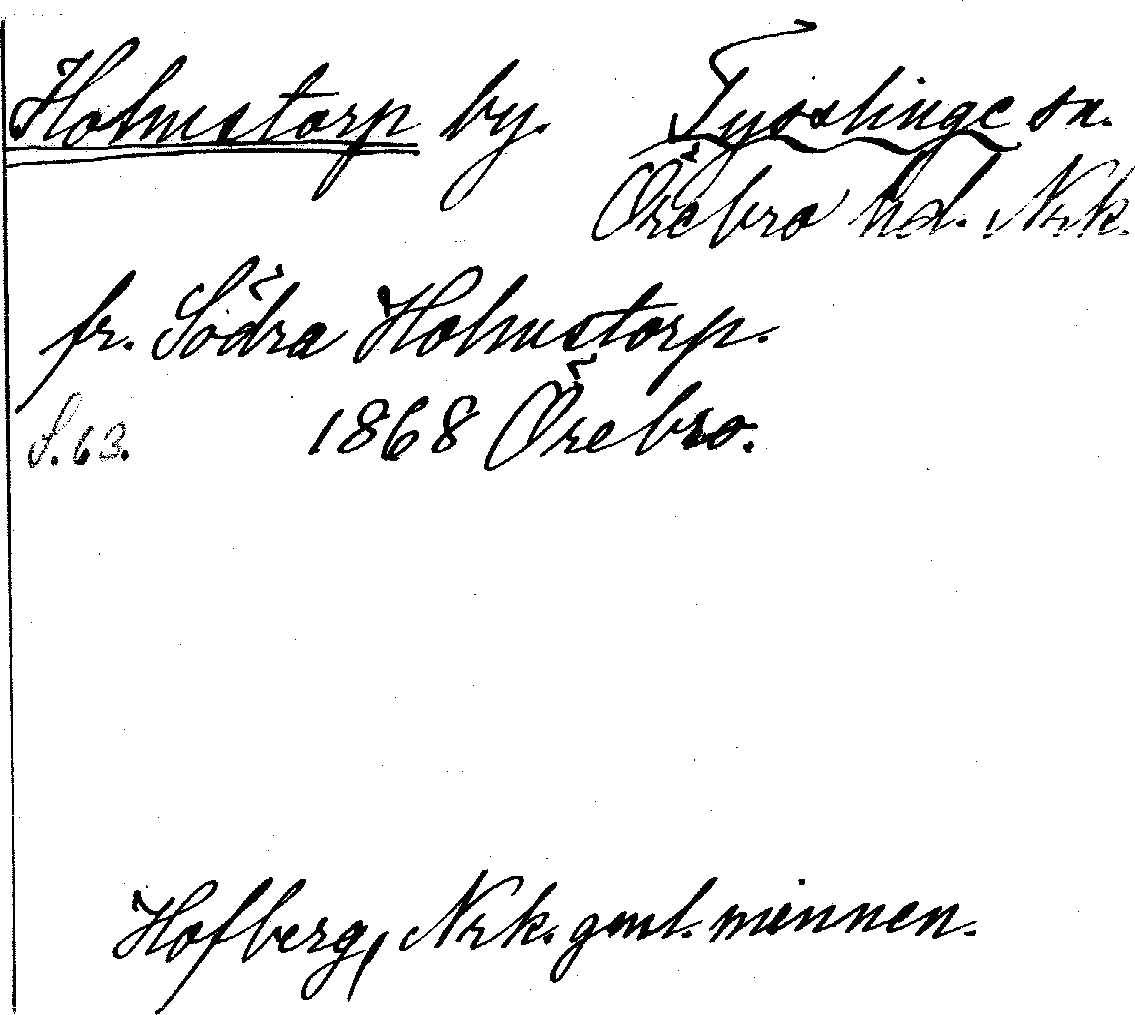 Holmstorp by. Tysslinge sn.
Örebro hd. Nrk.
fr. Södra Holmstorp.
S. 63. 1868 Örebro.
Hofberg, Nrk. gml. minnen.